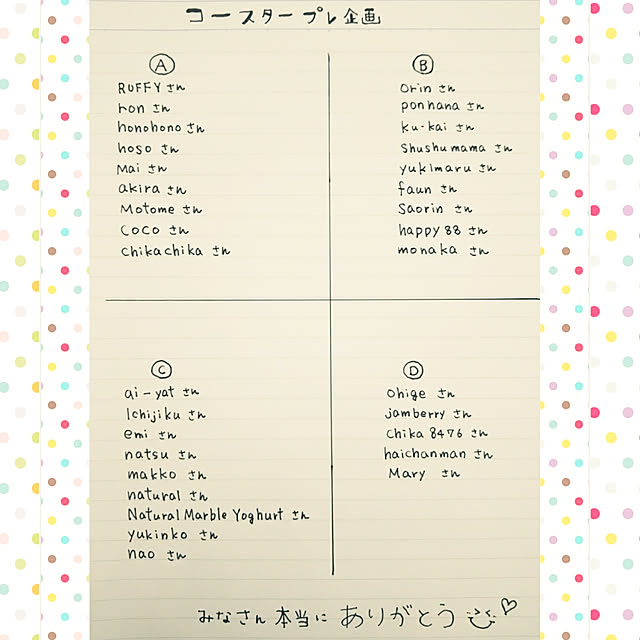 コースタープレ企画
A
RUFFYさん
ronさん
honohonoさん
hosoさん
Maiさん
akiraさん
Motomeさん
COCOさん
chikachikaさん
B
orinさん
ponhanaさん
ku-kaiさん
Shushumamaさん
yukimaruさん
faunさん
Saorinさん
happy88さん
monakaさん
C
ai-yatさん
Ichijikuさん
emiさん
natsuさん
makkoさん
naturalさん
Natural Marble Yoghurtさん
yukinkoさん
naoさん
D
Ohigeさん
jamberryさん
chika8476さん
haichanmanさん
Maryさん
みなさん本当にありがとう